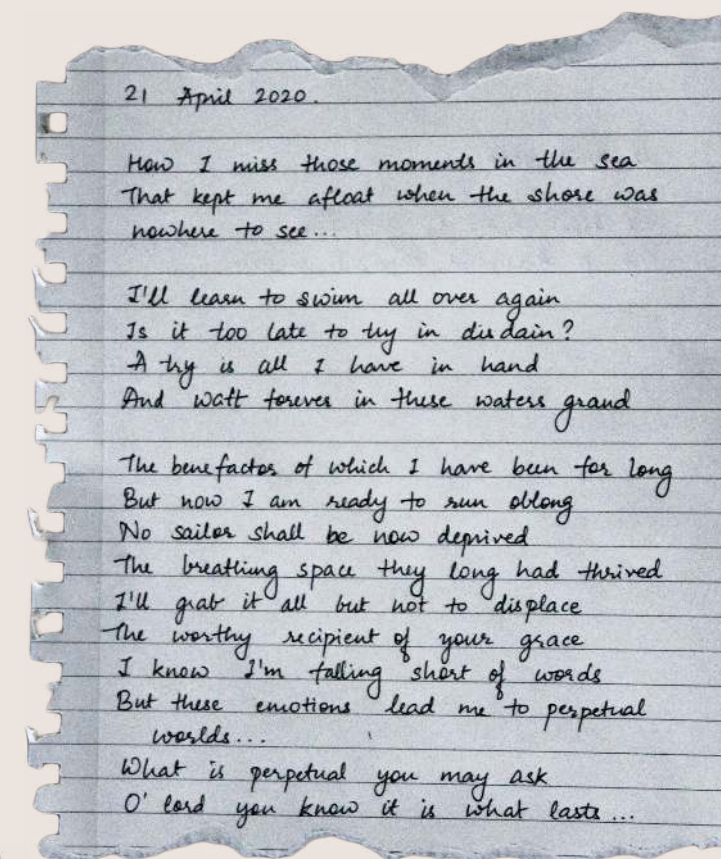 21 April 2020.
How I miss those moments in the sea
That kept me afloat when the shore was
nowhere to see...
I'll learn to swim all over again
Is it too late to try in disdain?
A try is all I have in hand
And waft forever in these waters grand
The benefactor of which I have been for long
But now I am ready to run oblong
No sailor shall be now deprived
The breathing space they long had thrived
I'll grab it all but not to displace
The worthy recipient of your grace
I know I'm falling short of words
But these emotions lead me to perpetual
worlds...
What is perpetual you may ask
O' lord you know it is what lasts...